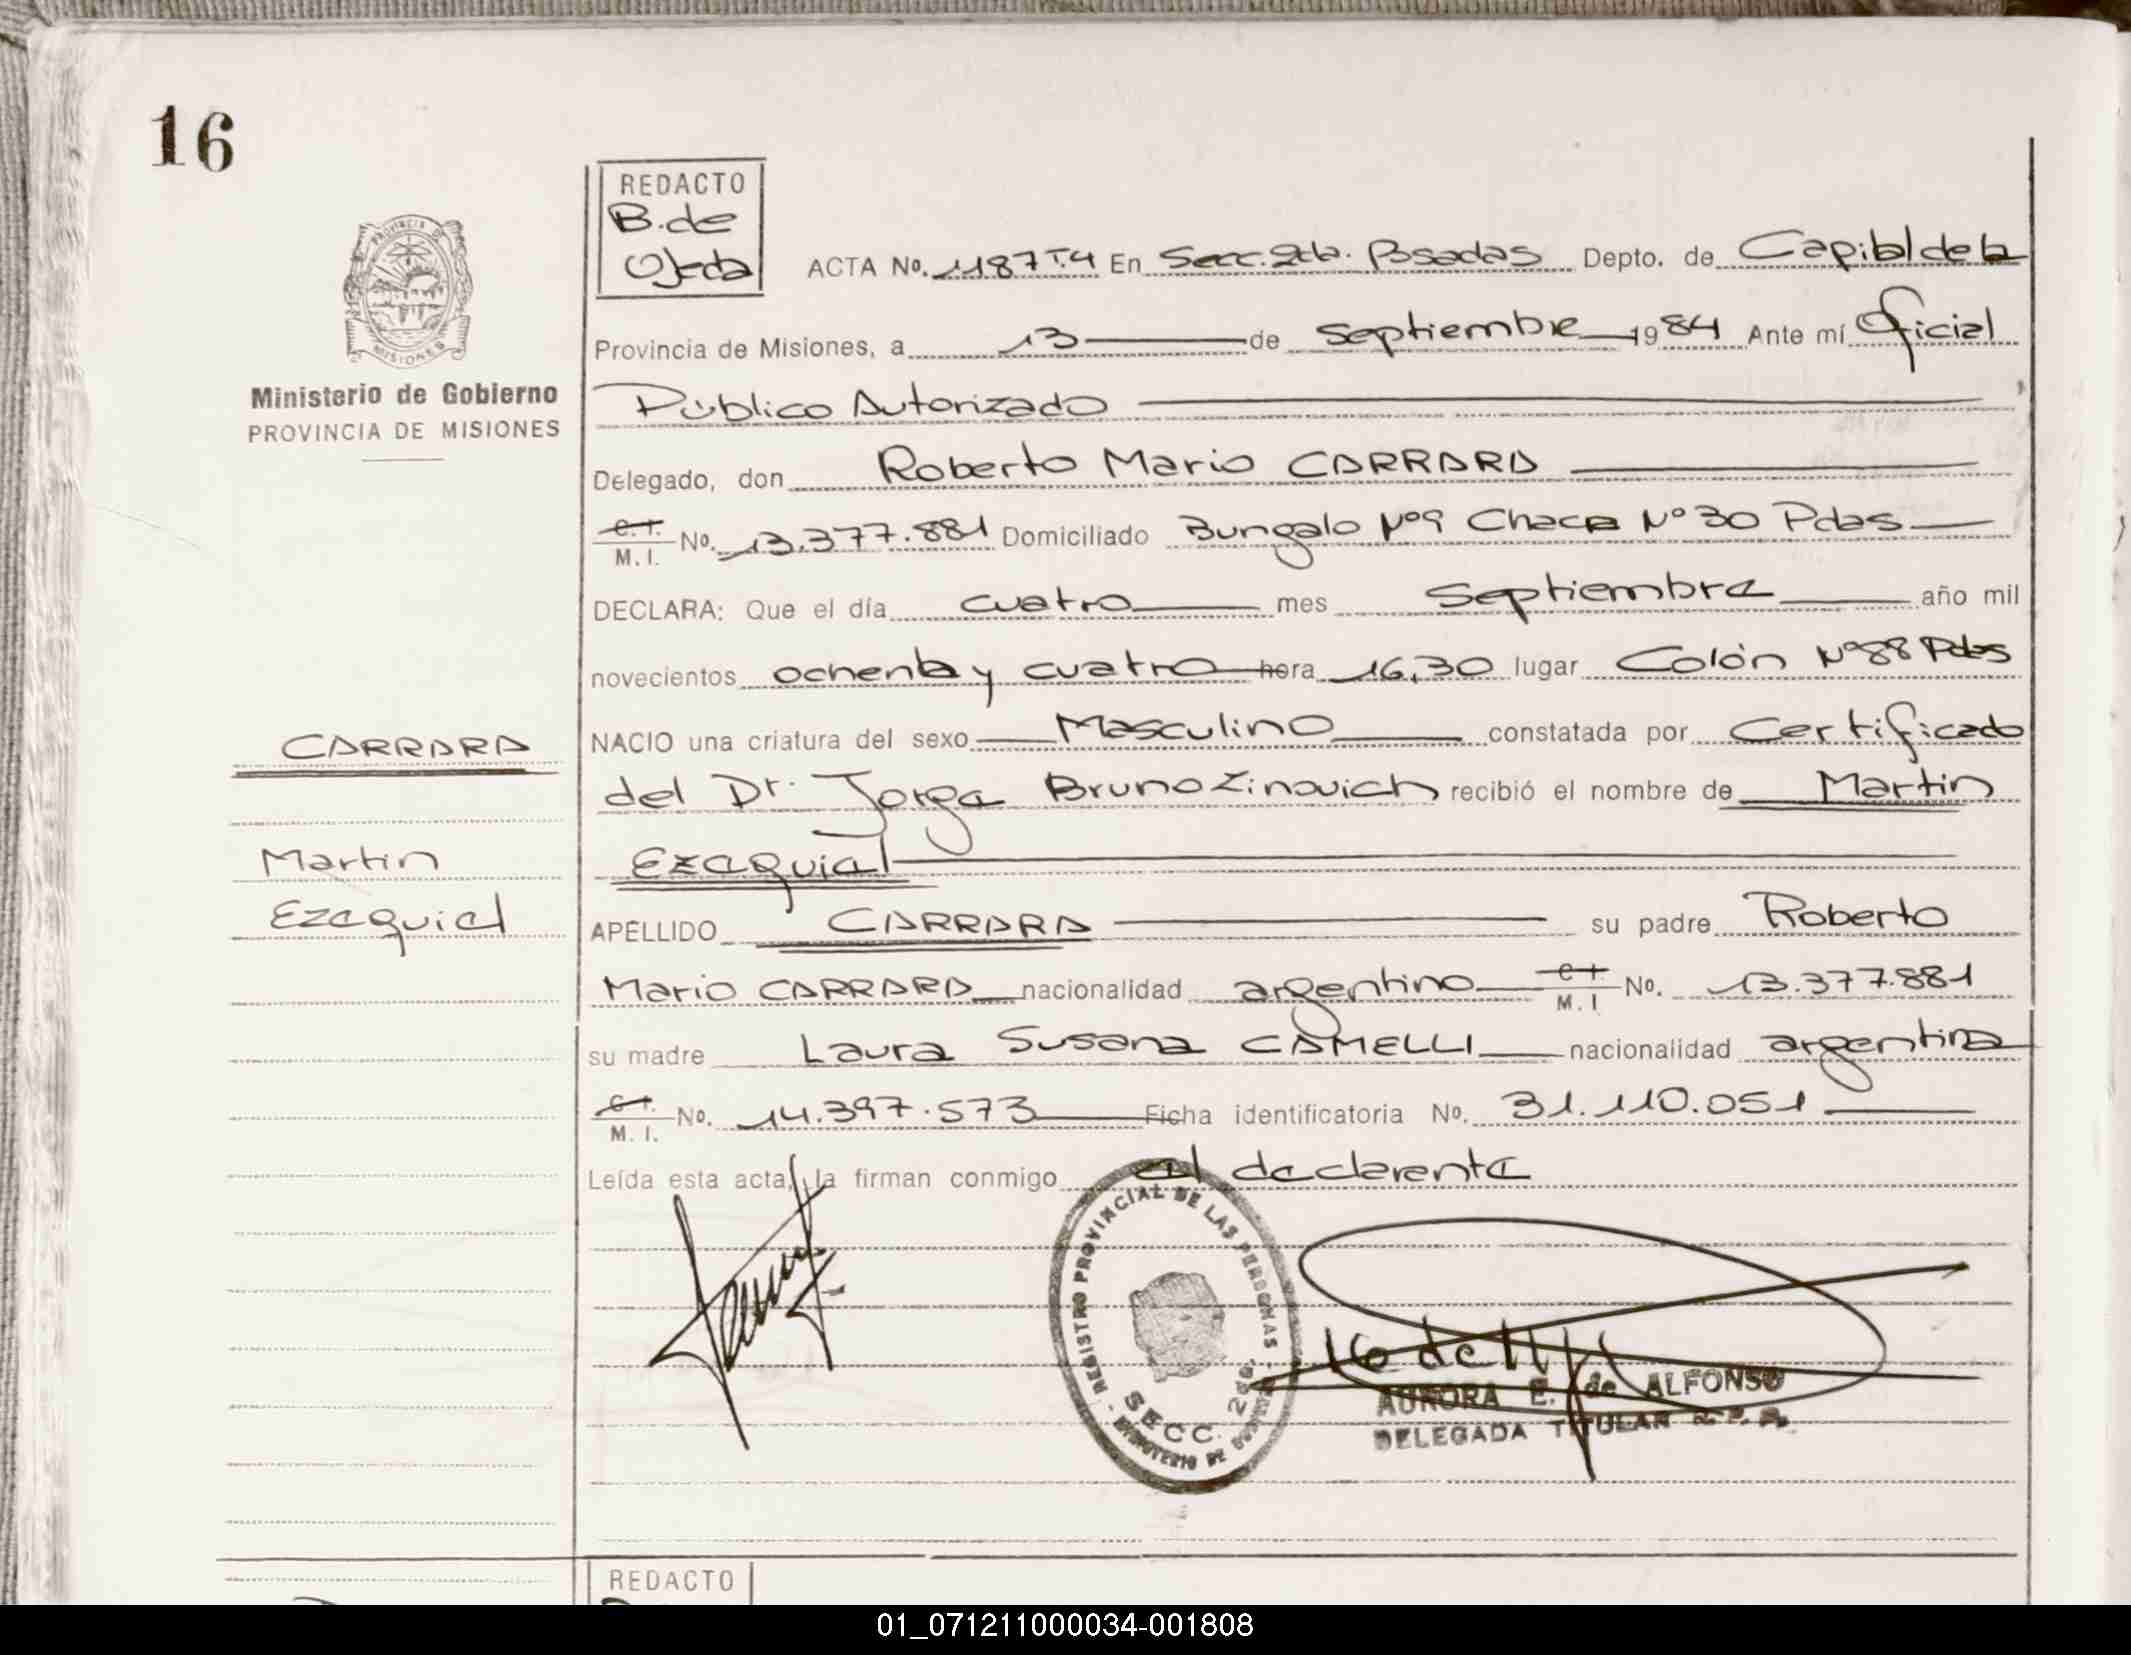 16
REDACTO
B. de
Ojeda
ACTA No. 1187 T.4 En Secc. 2da. Posadas Depto. de Capital de la
Provincia de Misiones, a 13 de Septiembre 1984 Ante mí Oficial
Público Autorizado
Delegado, don Roberto Mario CARRARA
C.I. M.I. No. 13.377.881 Domiciliado Bungalo Nº9 Chacra Nº30 Pdas
DECLARA: Que el día cuatro mes Septiembre año mil
novecientos ochenta y cuatro hora 16,30 lugar Colón Nº88 Pdas
NACIO una criatura del sexo Masculino constatada por Certificado
del Dr. Jorge Bruno Zinovich recibió el nombre de Martin
Ezequiel
APELLIDO CARRARA su padre Roberto
Mario CARRARA nacionalidad argentino C.I. M.I No. 13.377.881
su madre Laura Susana CAMELLI nacionalidad argentina
C.I. M.I. No. 14.397.573 Ficha identificatoria No. 31.110.051
Leída esta acta, la firman conmigo el declarante
PROVINCIA DE
MISIONES
Ministerio de Gobierno
PROVINCIA DE MISIONES
CARRARA
Martin
Ezequiel
REGISTRO PROVINCIAL DE LAS PERSONAS
SECC. 2da.
MINISTERIO DE GOBIERNO
AURORA E. de ALFONSO
DELEGADA TITULAR R. P. P.
REDACTO
01_071211000034-001808